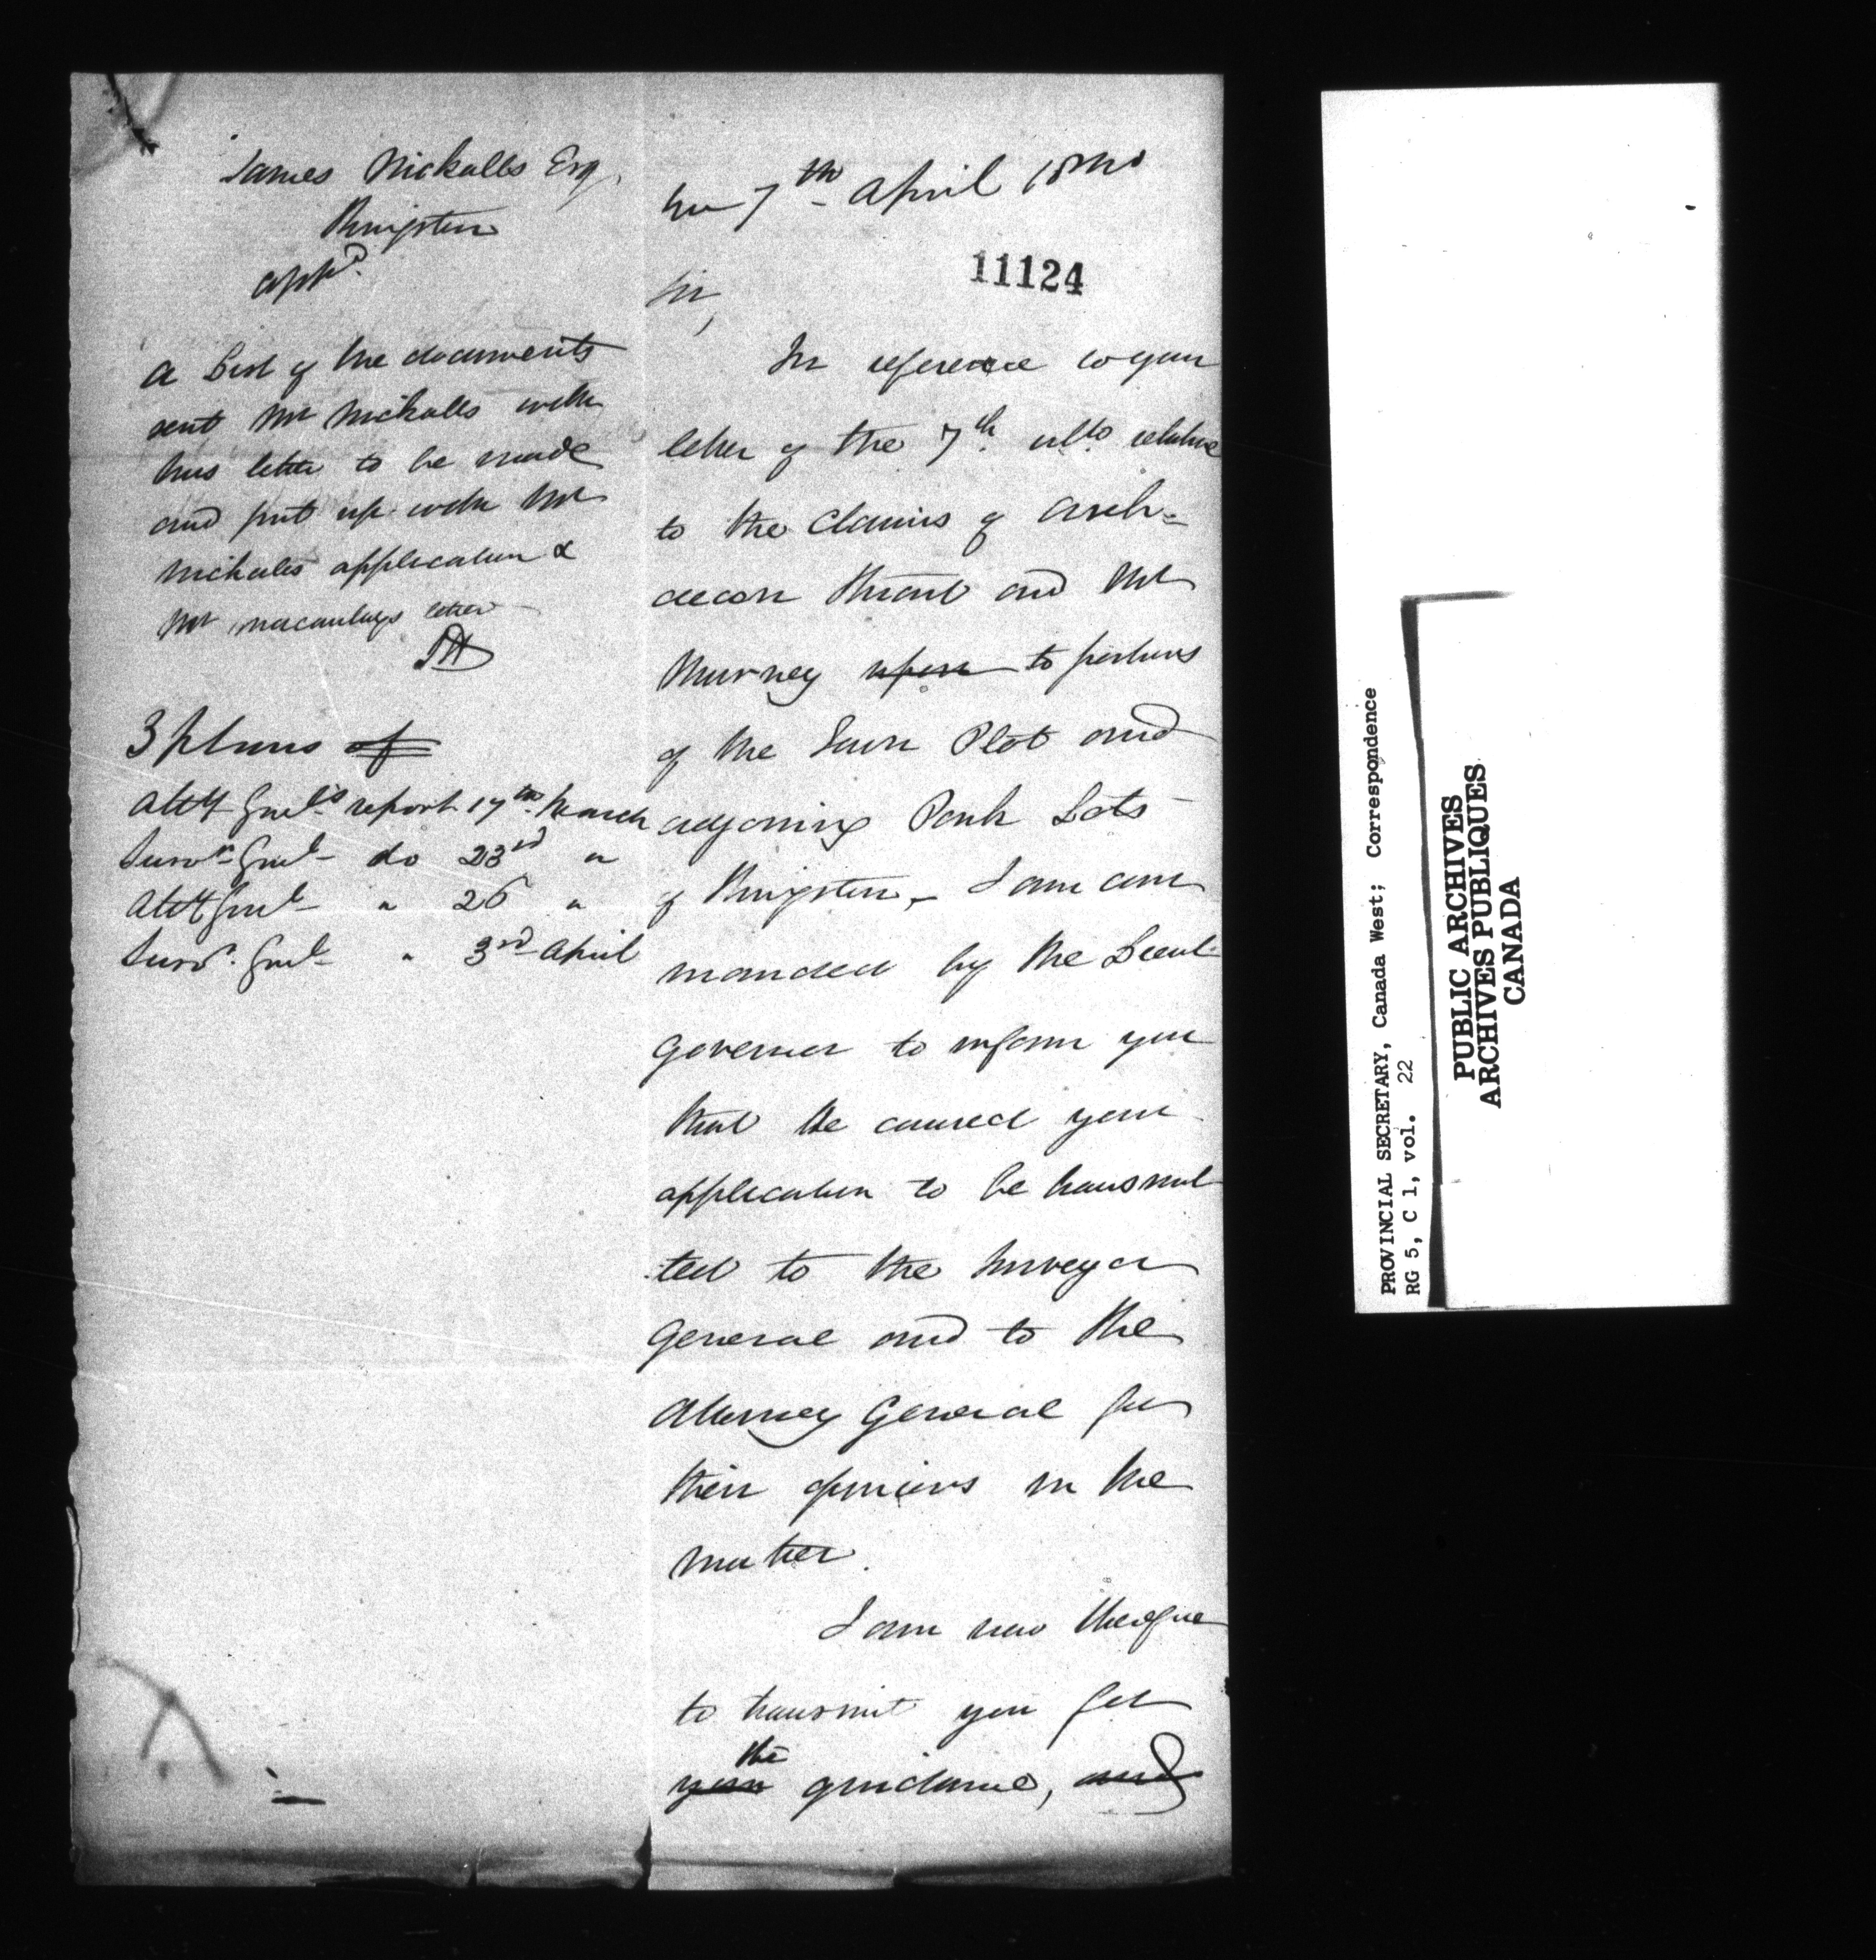 James Nickalls Esq.
Kingston
appd.
a List of the documents
sent Mr Nickalls with
his letter to be made
and put up with Mr
Nickalls application &
Mr Macaulays letter
3 plans of
Atty Genl's report 17th March
Survr. Genl do 23rd "
Atty Genl " 26 "
Survr. Genl " 3rd April
7th April 1840
11124
Sir,
In reference to your
letter of the 7th. ulto. relative
to the Claims of Arch=
deacon Stuart and Mr
Murney upon to portions
of the Town Plot and
adjoining Park Lots
of Kingston, I am com
manded by the Lieut
Governor to inform you
that He caused your
application to be transmit
ted to the Surveyor
General and to the
Attorney General for
their opinions in the
matter.
I am now therefore
to transmit you for
the
your guidance, and
PROVINCIAL SECRETARY, Canada West; Correspondence
RG 5, C 1, vol. 22
PUBLIC ARCHIVES
ARCHIVES PUBLIQUES
CANADA